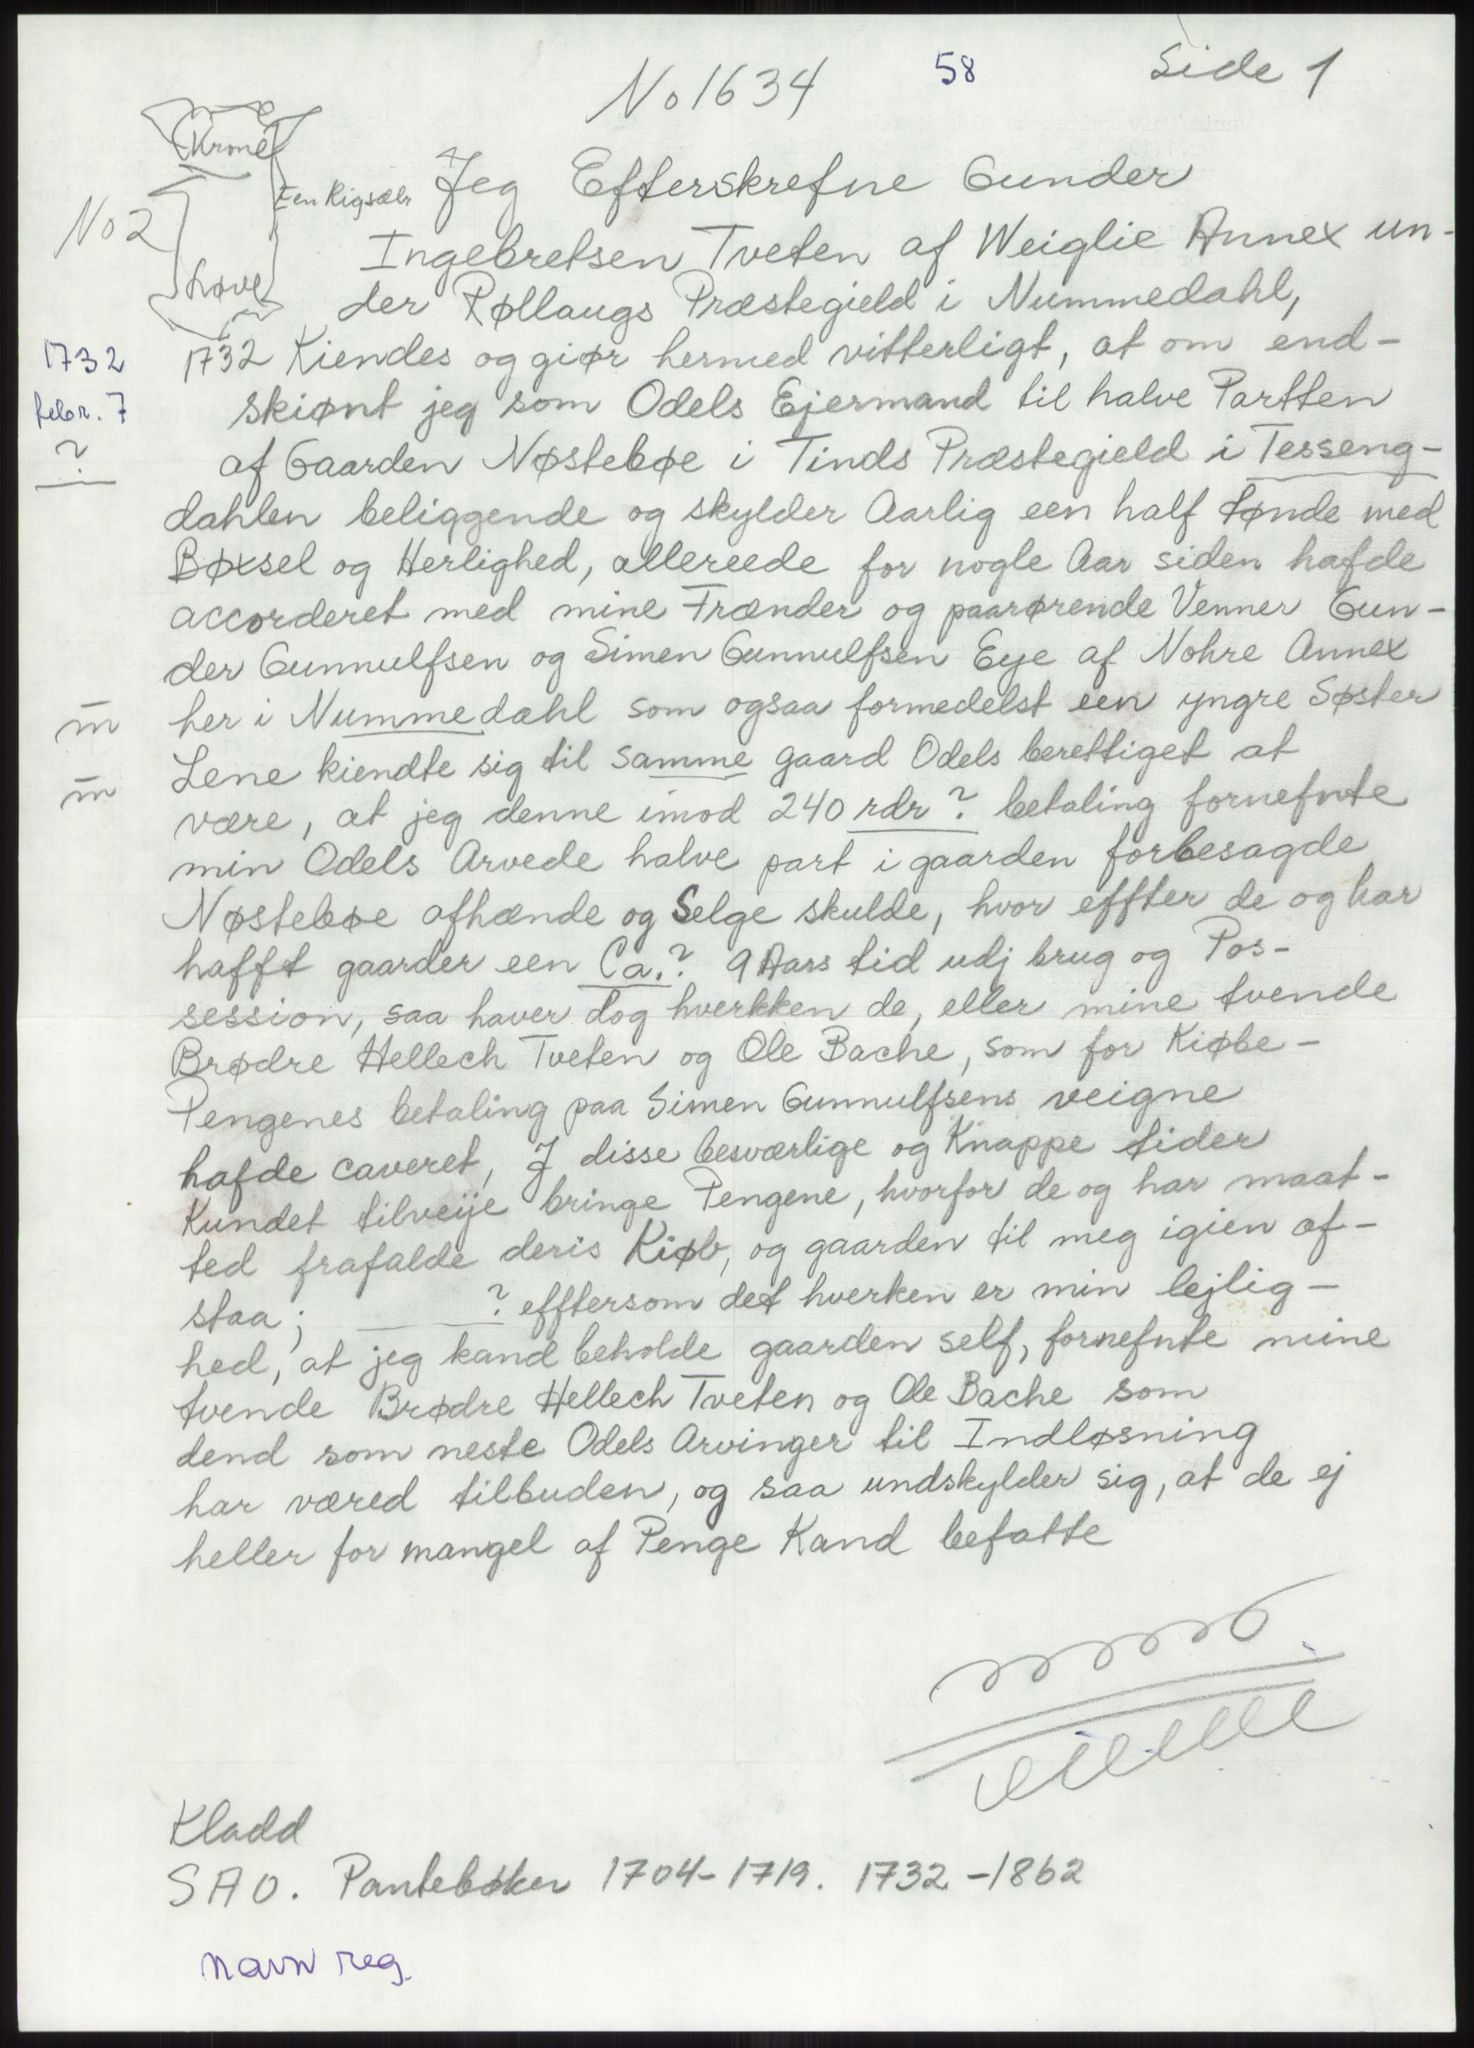 No 1634
58
Side 1
Krone
Een Rigsdlr
No 2
Løve
Jeg Efterskrefne Gunder
Ingebretsen Tveten af Weiglie Annex un-
der Røllaugs Præstegield i Nummedahl,
1732
febr. 7
?
1732 Kiendes og giør hermed vitterligt, at om end-
skiønt jeg som Odels Ejermand til halve Partten
af Gaarden Nøstebøe i Tinds Præstegield i Tesseng-
dahlen beliggende og skylder Aarlig een half tønde med
Bøxsel og Herlighed, allereede for nogle Aar siden hafde
accorderet med mine Frænder og paarørende Venner Gun-
der Gunnulfsen og Simen Gunnulfsen Eye af Nohre Annex
m̄ her i Nummedahl som ogsaa formedelst een yngre Søster
Lene kiendte sig til samme gaard Odels berettiget at
m̄ være, at jeg denne imod 240 rdr ? betaling fornefnte
min Odels Arvede halve part i gaarden forbesagde
Nøstebøe afhænde og Selge skulde, hvor effter de og har
hafft gaarder een Ca.? 9 Aars tid udj brug og Pos-
session, saa haver dog hverkken de, eller mine tvende
Brødre Hellech Tveten og Ole Bache, som for Kiøbe-
Pengenes betaling paa Simen Gunnulfsens veigne
hafde caveret, J disse besværlige og Knappe tider
Kundet tilveije bringe Pengene, hvorfor de og har maat-
ted frafalde deris Kiøb, og gaarden til meg igien af-
staa; ______ ? efftersom det hverken er min lejlig-
hed, at jeg kand beholde gaarden self, fornefnte mine
tvende Brødre Hellech Tveten og Ole Bache som
dend som neste Odels Arvinger til Indløsning
har væred tilbuden, og saa undskylder sig, at de ej
heller for mangel af Penge Kand befatte
Kladd
SAO. Pantebøker 1704-1719. 1732-1862
navn reg.